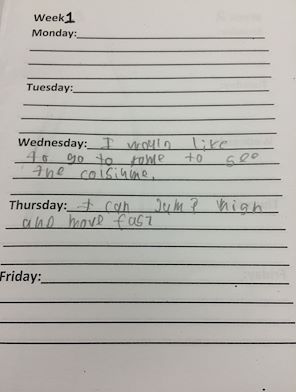 Week1
Monday:
Tuesday:
Wednesday: I wouln like
to go to rome to see
the colsinme.
Thursday: I can Jump high
and move fast
Friday: